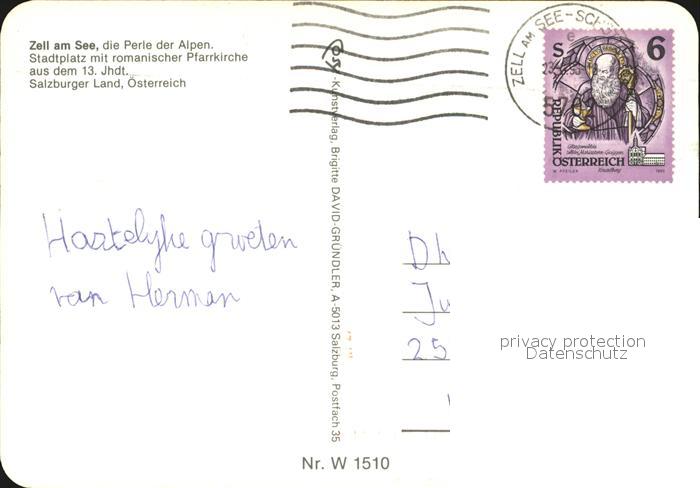 Zell am See, die Perle der Alpen.
Stadtplatz mit romanischer Pfarrkirche
aus dem 13. Jhdt.
Salzburger Land, Österreich
ZELL AM SEE-SCH
S 6
REPUBLIK
ÖSTERREICH
-Kunstverlag, Brigitte DAVID-GRÜNDLER, A-5013 Salzburg, Postfach 35
Hartelijke groeten
van Herman
Dh
Ju
25
privacy protection
Datenschutz
Nr. W 1510